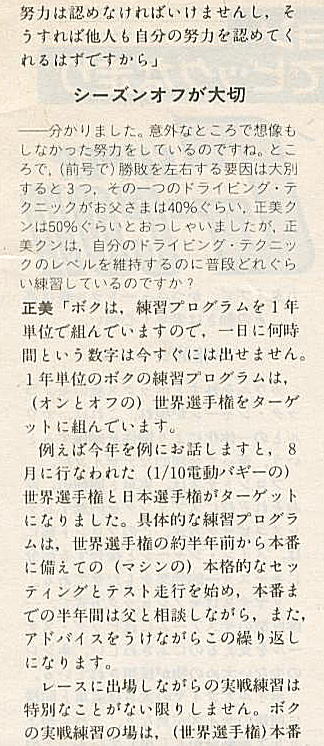 努力は認めなければいけませんし，そ
うすれば他人も自分の努力を認めてく
れるはずですから」
シーズンオフが大切
――分かりました。意外なところで想像も
しなかった努力をしているのですね。とこ
ろで，(前号で)勝敗を左右する要因は大別
すると3つ，その一つのドライビング・テ
クニックがお父さまは40%ぐらい，正美ク
ンは50%ぐらいとおっしゃいましたが，正
美クンは，自分のドライビング・テクニッ
クのレベルを維持するのに普段どれぐら
い練習しているのですか？
正美「ボクは，練習プログラムを1年
単位で組んでいますので，一日に何時
間という数字は今すぐには出せません。
1年単位のボクの練習プログラムは，
(オンとオフの) 世界選手権をターゲ
ットに組んでいます。
例えば今年を例にお話しますと，8
月に行なわれた (1/10電動バギーの)
世界選手権と日本選手権がターゲット
になりました。具体的な練習プログラ
ムは，世界選手権の約半年前から本番
に備えての (マシンの) 本格的なセッ
ティングとテスト走行を始め，本番ま
での半年間は父と相談しながら，また，
アドバイスをうけながらこの繰り返し
になります。
レースに出場しながらの実戦練習は
特別なことがない限りしません。ボク
の実戦練習の場は，(世界選手権)本番